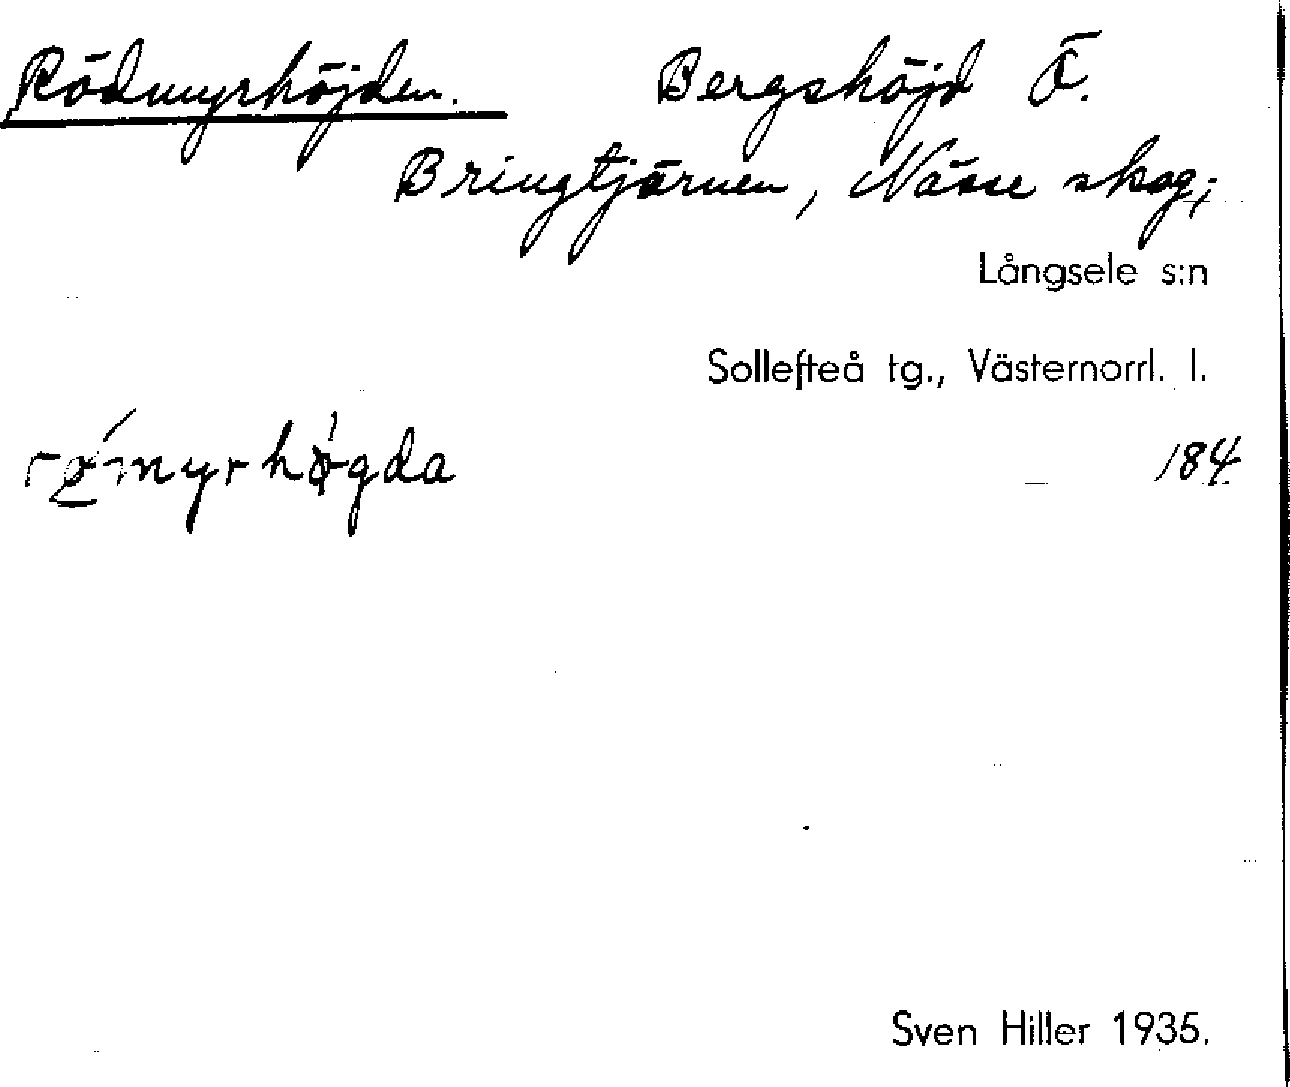 Rödmyrhöjden. Bergshöjd Ö.
Bringtjärnen, Nässe skog;
Långsele s:n
Sollefteå tg., Västernorrl. l.
184
Sven Hiller 1935.